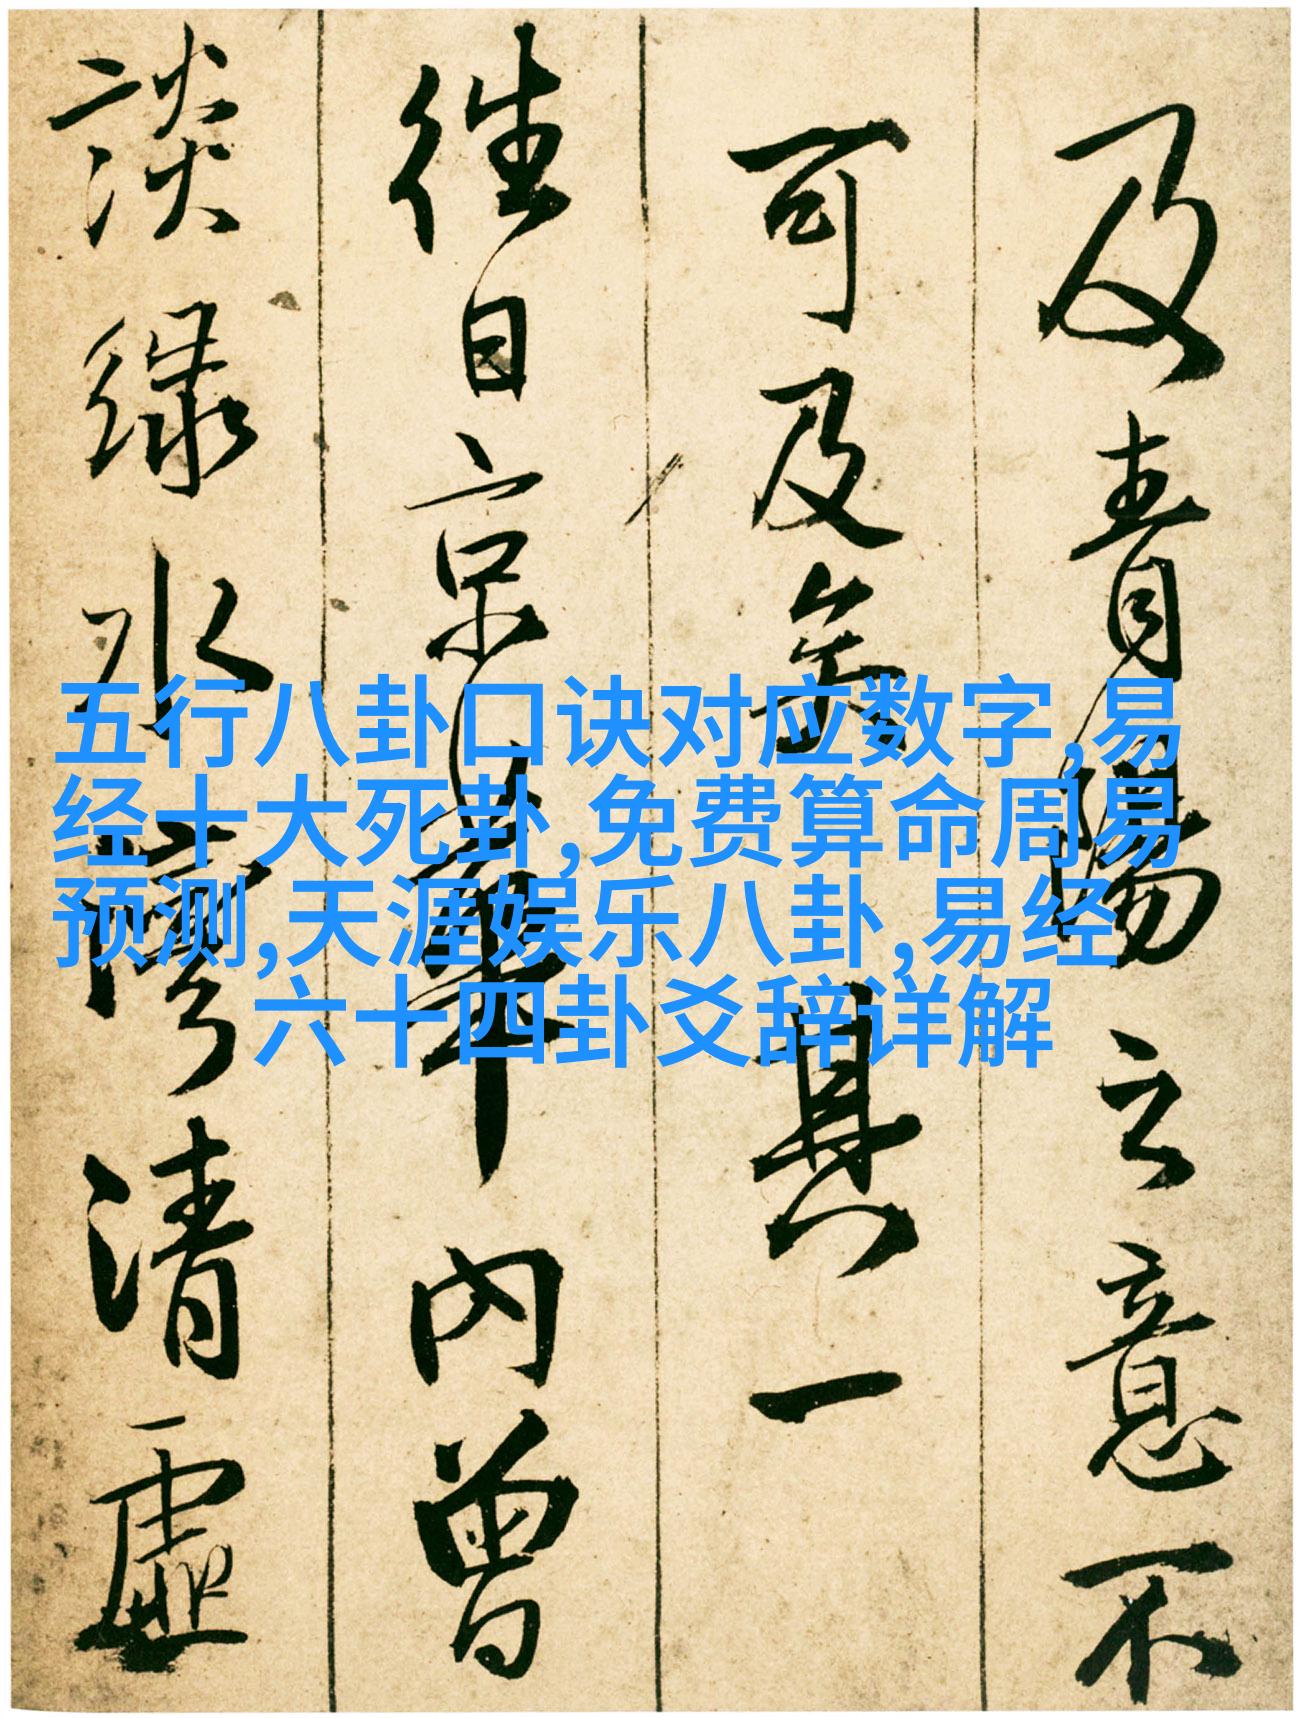 及青陽之意不
可及矣其一
往日京華内曾
談綠水灣清虛
五行八卦口诀对应数字,易
经十大死卦,免费算命周易
预测,天涯娱乐八卦,易经
六十四卦爻辞详解